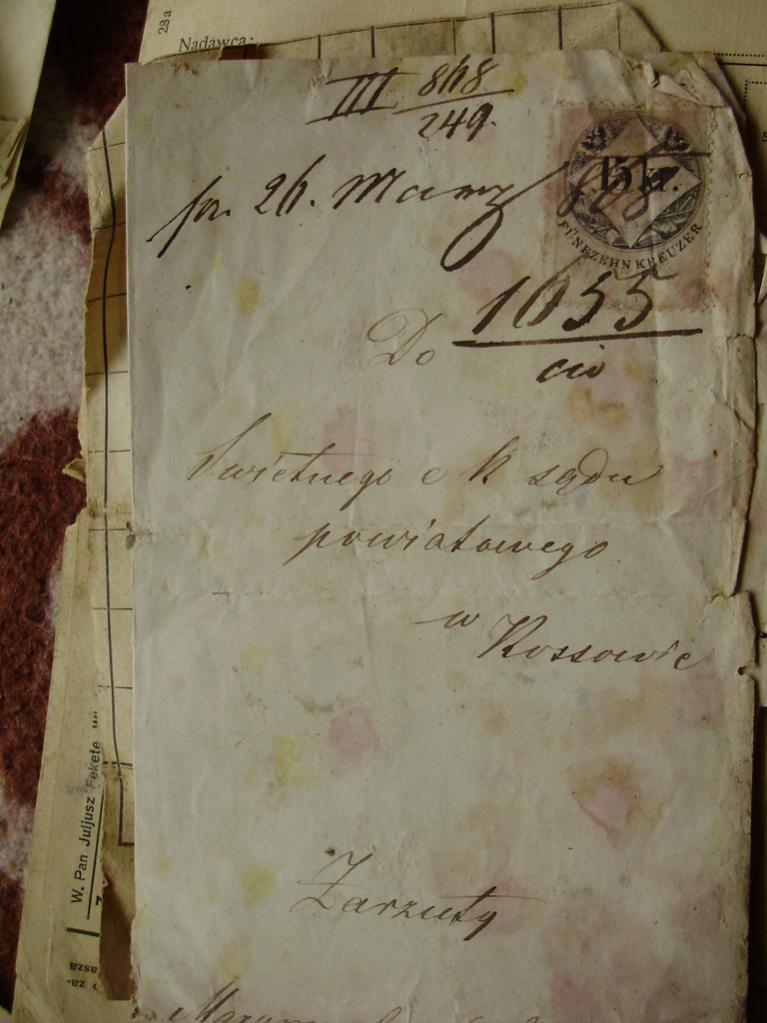 28a
Nadawca:
III 868
249.
pr. 26. Marz 868
15 kr.
FÜNFZEHN KREUZER
1055
cio
Do
Świetnego c k sądu
powiatowego
w Kossowie
Zarzuty
W. Pan Juljusz Fekete